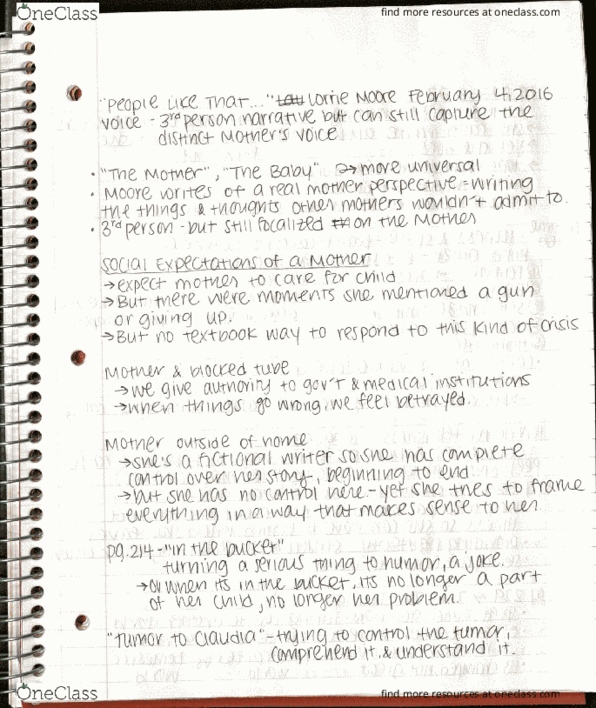 OneClass
find more resources at oneclass.com
"People Like That..." Lorrie Moore February 4, 2016
voice - 3rd person narrative but can still capture the
distinct Mother's voice
• "The Mother", "The Baby" → more universal
• Moore writes of a real mother perspective - writing
the things & thoughts other mothers wouldn't admit to.
• 3rd person - but still focalized on the Mother
Social Expectations of a Mother
→ expect mother to care for child
→ But there were moments she mentioned a gun
or giving up.
→ But no textbook way to respond to this kind of crisis
Mother & blocked tube
→ we give authority to gov't & medical institutions
→ when things go wrong, we feel betrayed.
Mother outside of home
→ she's a fictional writer so she has complete
control over her story, beginning to end
→ but she has no control here - yet she tries to frame
everything in a way that makes sense to her.
pg. 214 - "in the bucket"
turning a serious thing to humor, a joke.
→ or when its in the bucket, its no longer a part
of her child, no longer her problem.
"tumor to Claudia" - trying to control the tumor,
comprehend it, & understand it.
OneClass
find more resources at oneclass.com